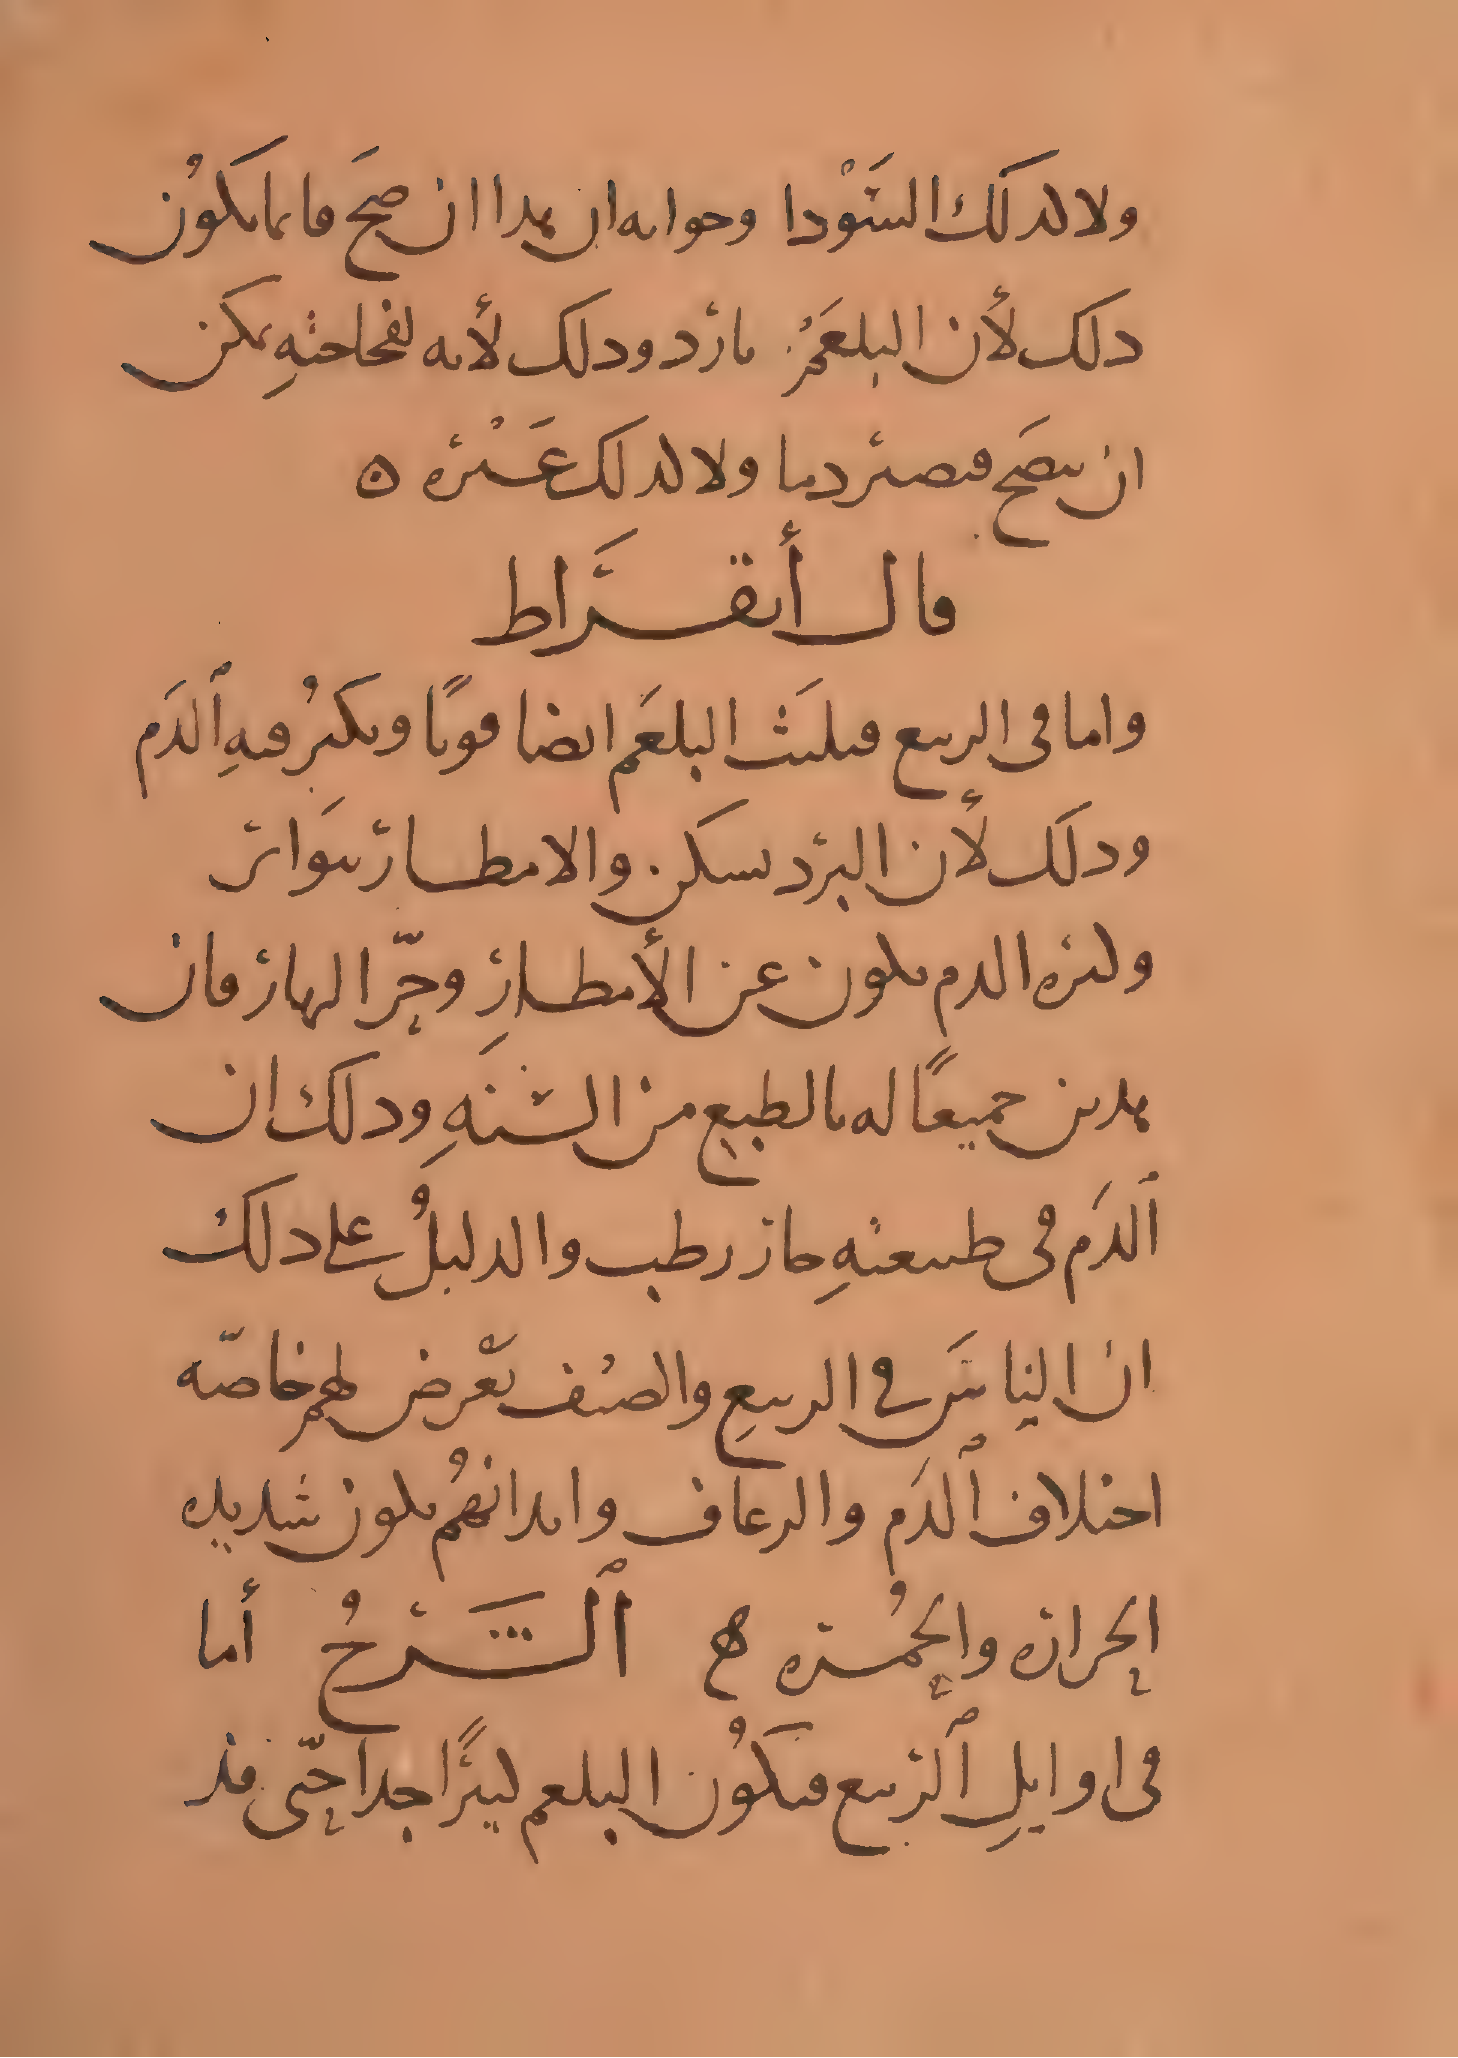 ولا لذلك السَّوْدا وجوابه ان هذا ان صحَّ فانما يكوُن
ذلك لأن البلغمُ باردٌ وذلك لأنه لفجاجتهِ يمكن
ان ينضج فيصير دما ولا لذلك غَيْره ه
قال أبقراط
واما في الربيع فيلبث البلغَم ايضا قويًا ويكثُر فيهِ ٱلدَم
وذلك لأن البرد يسكن والامطار تتواتر
وكثره الدم تكون عن الأمطارِ وحرّ النهار فان
هذين جميعًا له بالطبع من السَّنَهِ وذلك ان
ٱلدَم في طبيعتهِ حار رطب والدليلُ على ذلك
ان الناسَ في الربيعِ والصيف يعْرض لهم خاصّه
اختلاف ٱلدَم والرعاف وابدانهُم تكون شديده
الحراره والحُمره ه ٱلشَّرحُ أما
في اوايلِ ٱلربيع فيكوُن البلغم كثيرًا جدا حتّى قد